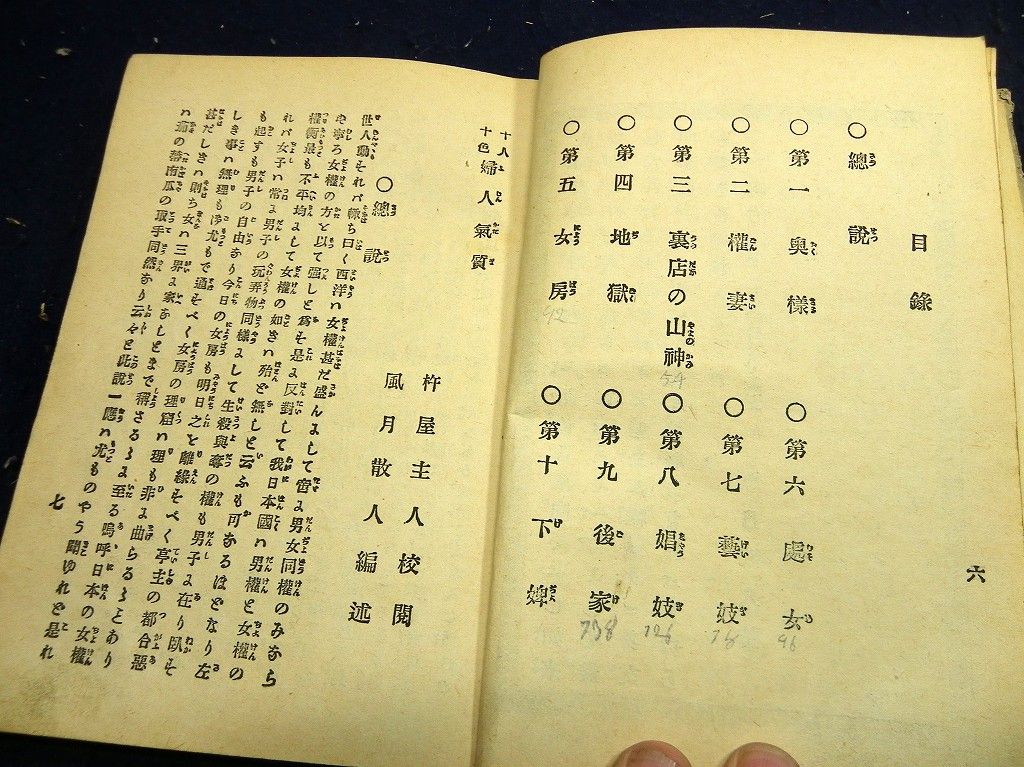 目錄
○總說
○第一 奥樣
○第二 權妻
○第三 裏店の山神
○第四 地獄
○第五 女房
○第六 處女
○第七 藝妓
○第八 娼妓
○第九 後家
○第十 下婢
54
92
96
126
138
六
十人十色 婦人氣質
杵屋主人校閱
風月散人編述
○總說
世人動それバ輙ち曰く西洋ハ女權甚だ盛んよして啻よ男女同權のみあら
や寧ろ女權の方と以て强しと爲そ是よ反對して我日本國ハ男權と女權の
權衡最も不平均よして女權の如きハ殆ど無しと云ふも可あるほどなり左
れバ女子ハ常よ男子の玩弄物同樣よして生殺與奪の權も男子よ在り臥そ
も起すも男子の自由なり今日の女房も明日之と離緣そべく亭主の都合惡
しき事ハ無理も御尤もで通そべく女房の理窟ハ理も非よ曲らるゝことあり
甚だしきハ則ち女ハ三界よ家なしとまで稱さるゝよ至る嗚呼日本の女權
ハ茄の蒂南瓜の取手同然なり云々と此說一應ハ尤ものやう聞ゆれど是れ
七